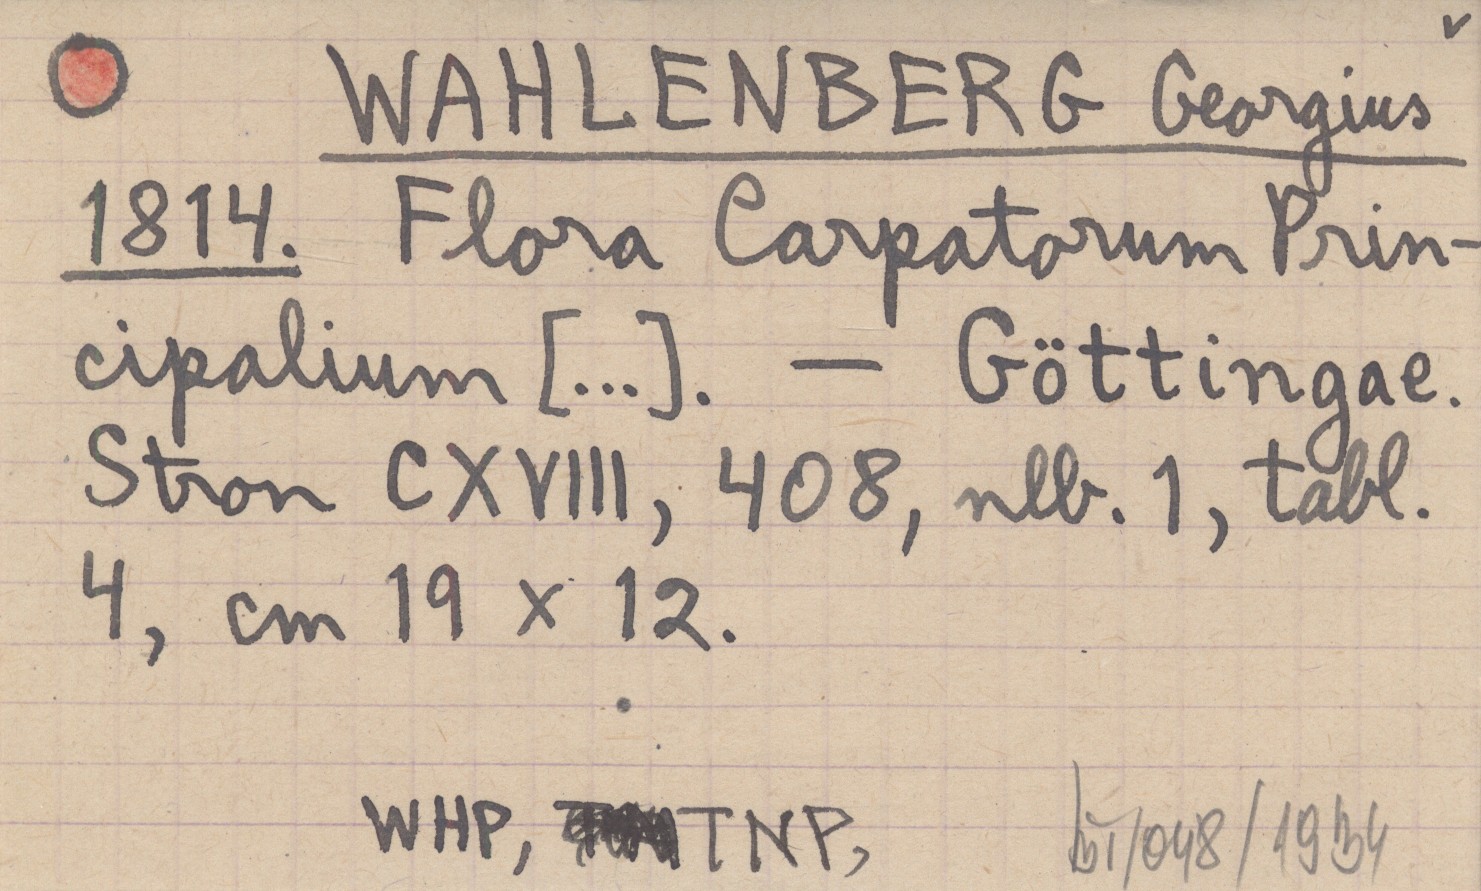 WAHLENBERG Georgius
1814. Flora Carpatorum Prin-
cipalium [...]. — Göttingae.
Stron CXVIII, 408, nlb. 1, tabl.
4, cm 19 x 12.
WHP, TNP,